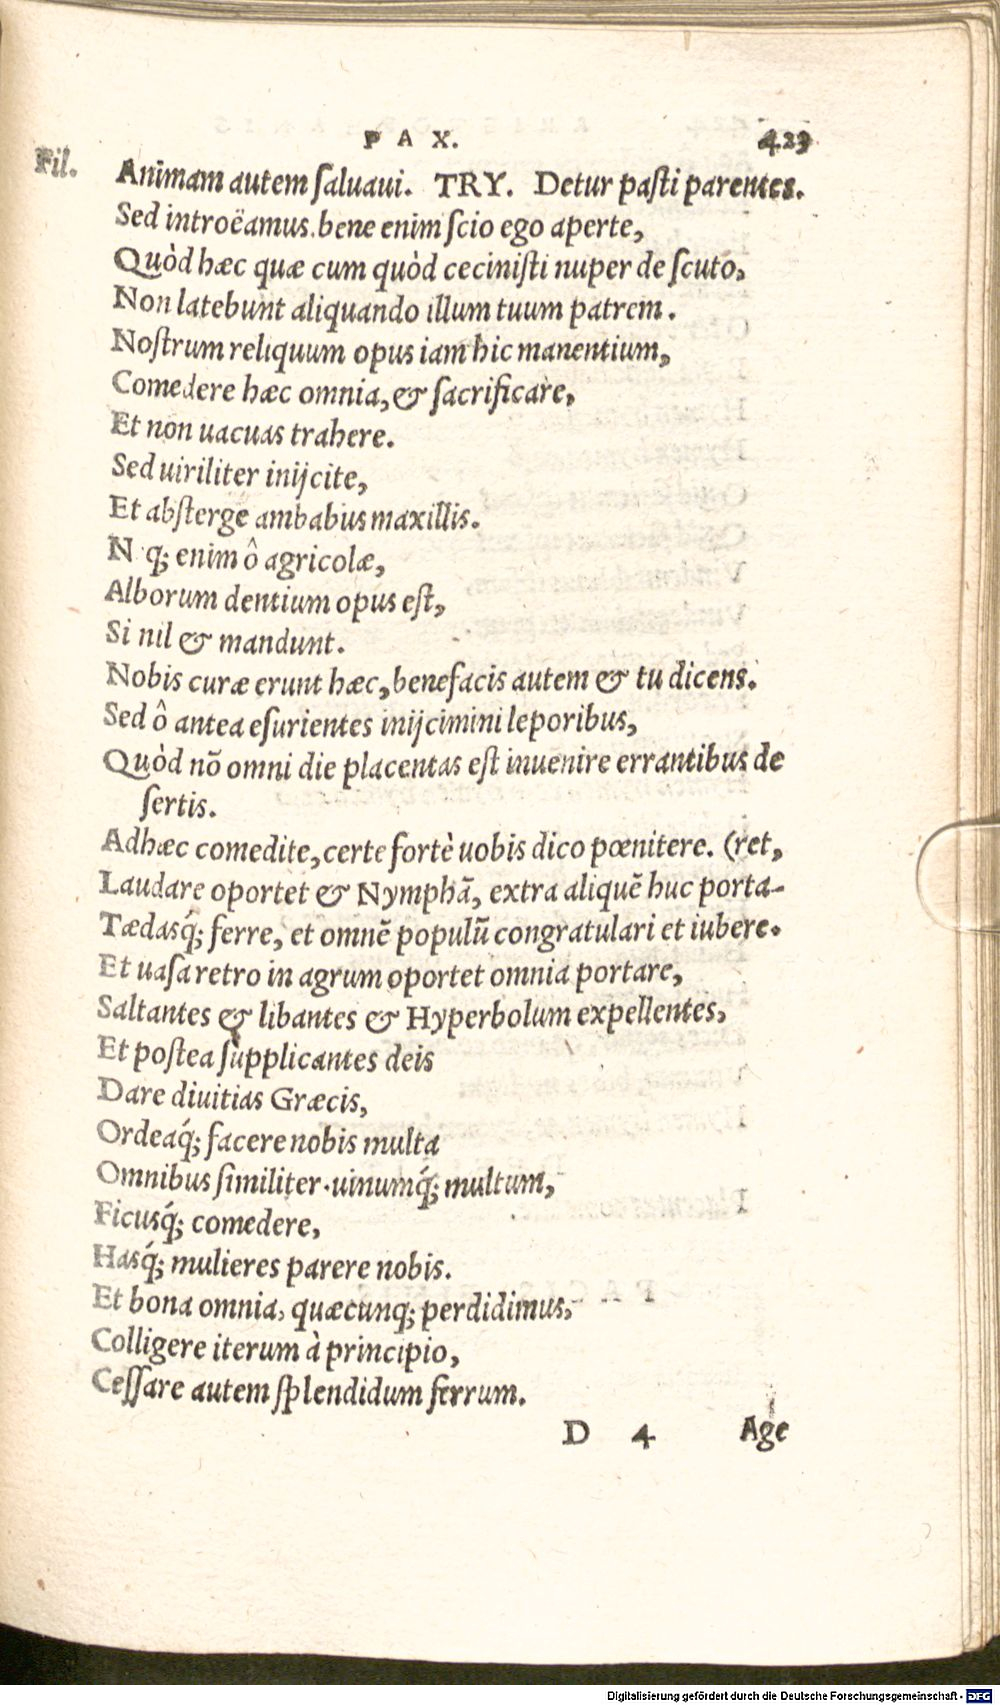 PAX. 423
Fil. Animam autem ſaluaui. TRY. Detur paſti parentes.
Sed introëamus. bene enim ſcio ego aperte,
Quòd hæc quæ cum quòd ceciniſti nuper de ſcuto,
Non latebunt aliquando illum tuum patrem.
Noſtrum reliquum opus iam hic manentium,
Comedere hæc omnia, & ſacrificare,
Et non uacuas trahere.
Sed uiriliter inijcite,
Et abſterge ambabus maxillis.
N q; enim ô agricolæ,
Alborum dentium opus eſt,
Si nil & mandunt.
Nobis curæ erunt hæc, benefacis autem & tu dicens.
Sed ô antea eſurientes inijcimini leporibus,
Quòd nō omni die placentas eſt inuenire errantibus de
ſertis.
Adhæc comedite, certe fortè uobis dico pœnitere. (ret,
Laudare oportet & Nymphā, extra aliquē huc porta-
Tædasq́; ferre, et omnē populū congratulari et iubere.
Et uaſa retro in agrum oportet omnia portare,
Saltantes & libantes & Hyperbolum expellentes,
Et poſtea ſupplicantes deis
Dare diuitias Græcis,
Ordeaq́; facere nobis multa
Omnibus ſimiliter. uinumq́; multum,
Ficusq́; comedere,
Hasq́; mulieres parere nobis.
Et bona omnia, quæcunq; perdidimus,
Colligere iterum à principio,
Ceſſare autem ſplendidum ferrum.
D 4 Age
Digitalisierung gefördert durch die Deutsche Forschungsgemeinschaft - DFG